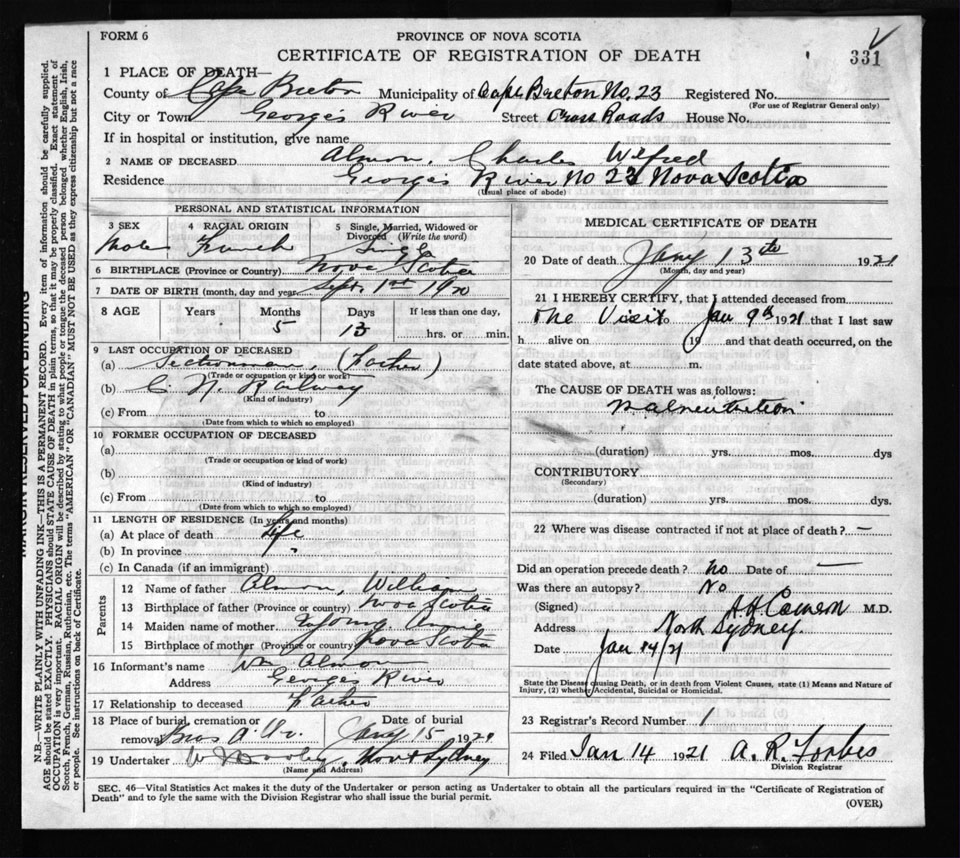 FORM 6
PROVINCE OF NOVA SCOTIA
CERTIFICATE OF REGISTRATION OF DEATH
331
1 PLACE OF DEATH—
County of Cape Breton Municipality of Cape Breton No. 23 Registered No.
(For use of Registrar General only)
City or Town Georges River Street Cross Roads House No.
If in hospital or institution, give name
2 NAME OF DECEASED Almon, Charles Wilfred
Residence Georges River No 23 Nova Scotia
(Usual place of abode)
PERSONAL AND STATISTICAL INFORMATION
3 SEX 4 RACIAL ORIGIN 5 Single, Married, Widowed or Divorced (Write the word)
Male French Single
6 BIRTHPLACE (Province or Country) Nova Scotia
7 DATE OF BIRTH (month, day and year) Sept. 1st 1920
8 AGE Years Months Days If less than one day,
5 13 hrs. or min.
9 LAST OCCUPATION OF DECEASED
(a) Sectionman (Father)
(Trade or occupation or kind of work)
(b) C. N. Railway
(Kind of industry)
(c) From to
(Date from which to which so employed)
10 FORMER OCCUPATION OF DECEASED
(a)
(Trade or occupation or kind of work)
(b)
(Kind of industry)
(c) From to
(Date from which to which so employed)
11 LENGTH OF RESIDENCE (In years and months)
(a) At place of death Life
(b) In province "
(c) In Canada (if an immigrant)
Parents
12 Name of father Almon, William
13 Birthplace of father (Province or country) Nova Scotia
14 Maiden name of mother Young Annie
15 Birthplace of mother (Province or country) Nova Scotia
16 Informant's name Wm Almon
Address Georges River
17 Relationship to deceased Father
18 Place of burial, cremation or removal Date of burial
Bras d'Or Jany 15 1921
19 Undertaker North Sydney
(Name and Address)
MEDICAL CERTIFICATE OF DEATH
20 Date of death Jany 13th 1921
(Month, day and year)
21 I HEREBY CERTIFY, that I attended deceased from
One Visit to Jan 9th 1921 that I last saw
h alive on 19 and that death occurred, on the
date stated above, at m.
The CAUSE OF DEATH was as follows:
Malnutrition
(duration) yrs. mos. dys
CONTRIBUTORY
(Secondary)
(duration) yrs. mos. dys.
22 Where was disease contracted if not at place of death? —
Did an operation precede death? No Date of —
Was there an autopsy? No
(Signed) M.D.
Address North Sydney.
Date Jan 14/21
State the Disease causing Death, or in death from Violent Causes, state (1) Means and Nature of
Injury, (2) whether Accidental, Suicidal or Homicidal.
23 Registrar's Record Number 1
24 Filed Jan 14 1921 A. R. Forbes
Division Registrar
SEC. 46—Vital Statistics Act makes it the duty of the Undertaker or person acting as Undertaker to obtain all the particulars required in the "Certificate of Registration of
Death" and to fyle the same with the Division Registrar who shall issue the burial permit.
(OVER)
MARGIN RESERVED FOR BINDING
N.B.—WRITE PLAINLY WITH UNFADING INK—THIS IS A PERMANENT RECORD. Every item of information should be carefully supplied.
AGE should be stated EXACTLY. PHYSICIANS should STATE CAUSE OF DEATH in plain terms, so that it may be properly classified. Exact statement of
OCCUPATION is very important. RACIAL ORIGIN will be described by stating to what people or tongue the deceased person belonged whether English, Irish,
Scotch, French, German, Russian, Ruthenian, etc. The terms "AMERICAN" or "CANADIAN" MUST NOT BE USED as they express citizenship but not a race
or people. See instructions on back of Certificate.